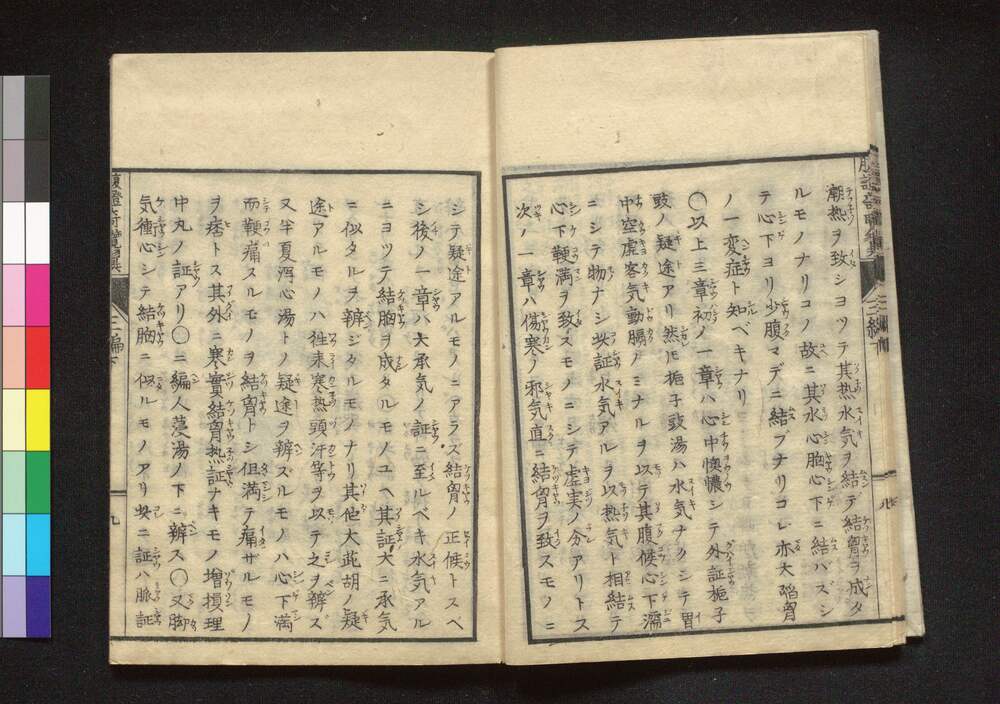 潮熱ヲ致シヨツテ其熱水気ヲ結デ結胷ヲ成タ
ルモノナリコノ故ニ其水心胸心下ニ結バズシ
テ心下ヨリ少腹マデニ結ブナリコレ亦大陥胷
ノ一変症ト知ベキナリ
〇以上三章初ノ一章ハ心中懊憹シテ外証梔子
豉ノ疑途アリ然𪜈梔子豉湯ハ水気ナクシテ胃
中空虚客気動膈ノミナルヲ以テ其腹候心下濡
ニシテ物ナシ此証水気アルヲ以熱気ト相結テ
心下鞕満ヲ致スモノニシテ虚実ノ分アリトス
次ノ一章ハ傷寒ノ邪気直ニ結胷ヲ致スモノニ
八
シテ疑途アルモノニアラズ結胷ノ正候トスベ
シ後ノ一章ハ大承気ノ証ニ至ルベキ水気アル
ニヨツテ結胸ヲ成タルモノユヘ其証大ニ承気
ニ似タルヲ辨ジタルモノナリ其他大茈胡ノ疑
途アルモノハ徃来寒熱頭汗等ヲ以テ之ヲ辨ズ
又半夏泻心湯トノ疑途ヲ辨スルモノハ心下満
而鞕痛スルモノヲ結胷トシ但満テ痛ザルモノ
ヲ痞トス其外ニ寒實結胷熱証ナキモノ増損理
中丸ノ証アリ〇二編人薓湯ノ下ニ辨ス〇又脚
気衝心シテ結胸ニ似ルモノアリ此ニ証ハ脈証
腹證奇覽翼
二編下
九